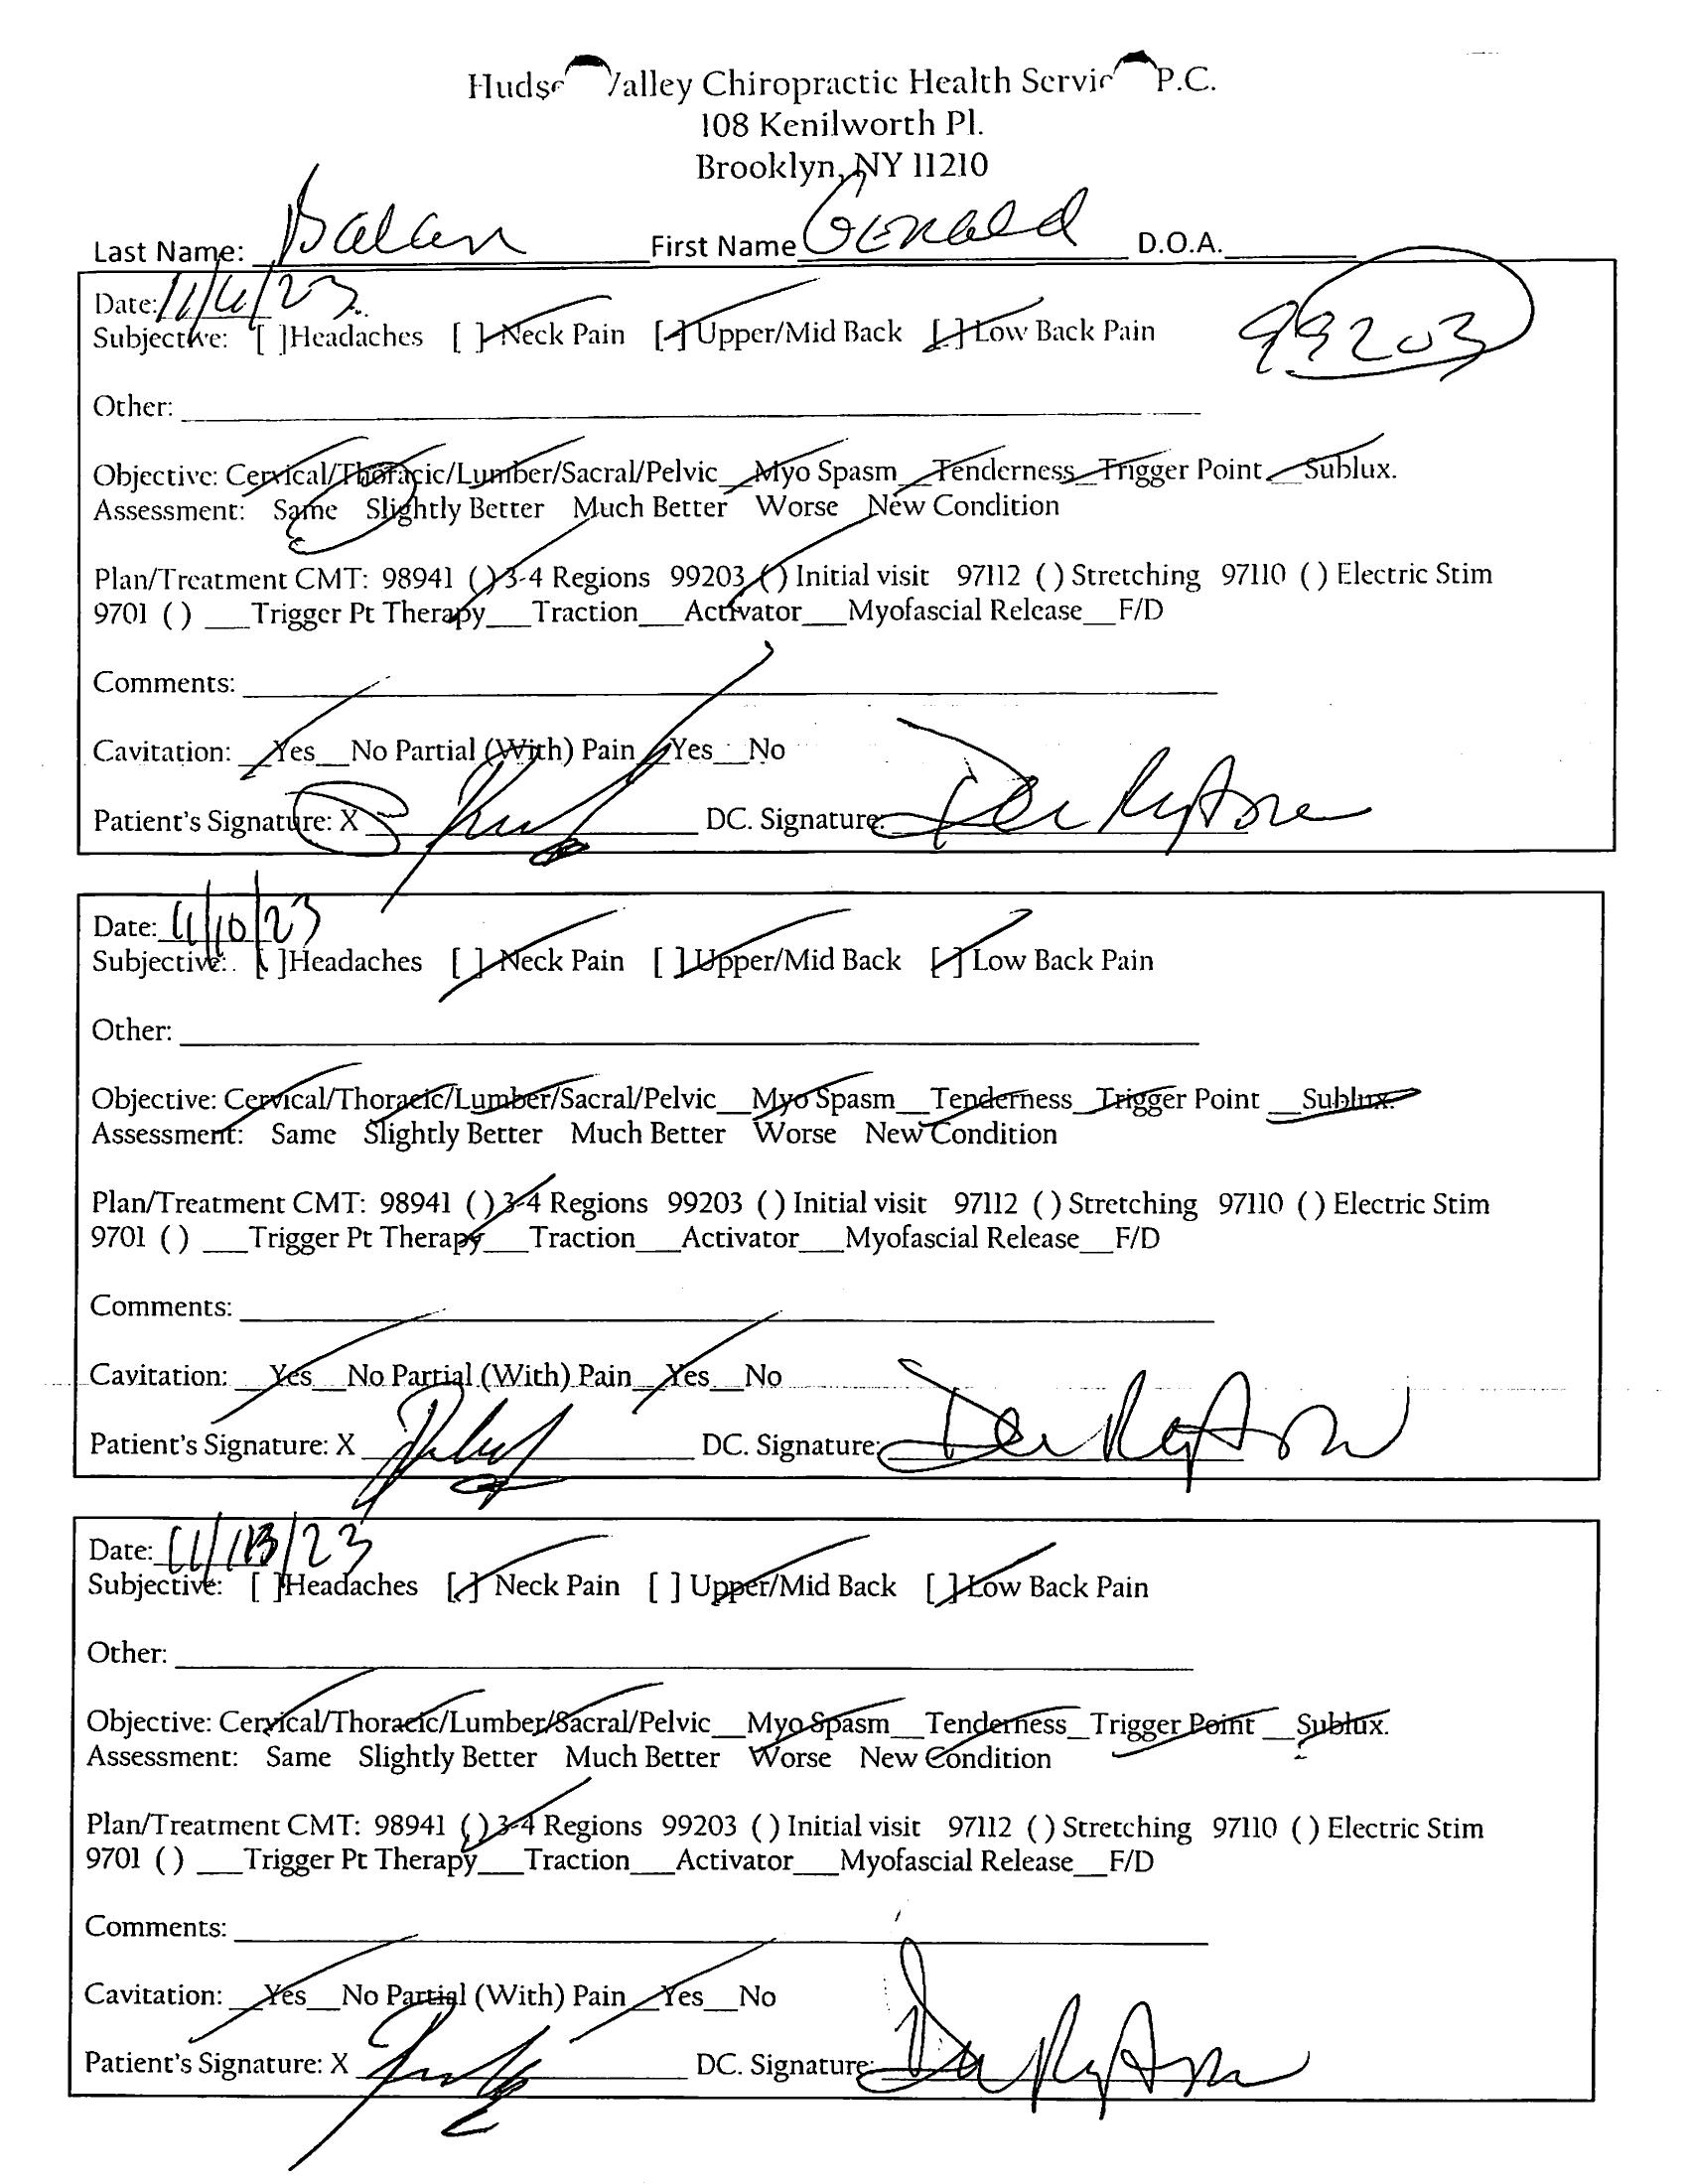 Hudso Valley Chiropractic Health Servic P.C.
108 Kenilworth Pl.
Brooklyn, NY 11210
Last Name: Balan First Name Gerald D.O.A.
Date: 11/6/23
Subjective: [ ]Headaches [ ] Neck Pain [ ] Upper/Mid Back [ ] Low Back Pain
99203
Other:
Objective: Cervical/Thoracic/Lumber/Sacral/Pelvic__Myo Spasm__Tenderness_Trigger Point __Sublux.
Assessment: Same Slightly Better Much Better Worse New Condition
Plan/Treatment CMT: 98941 ( ) 3-4 Regions 99203 ( ) Initial visit 97112 ( ) Stretching 97110 ( ) Electric Stim
9701 ( ) ___Trigger Pt Therapy___Traction___Activator___Myofascial Release__F/D
Comments:
Cavitation: __Yes__No Partial (With) Pain__Yes__No
Patient's Signature: X DC. Signature:
Date: 11/10/23
Subjective: [ ]Headaches [ ] Neck Pain [ ] Upper/Mid Back [ ] Low Back Pain
Other:
Objective: Cervical/Thoracic/Lumber/Sacral/Pelvic__Myo Spasm__Tenderness_Trigger Point __Sublux.
Assessment: Same Slightly Better Much Better Worse New Condition
Plan/Treatment CMT: 98941 ( ) 3-4 Regions 99203 ( ) Initial visit 97112 ( ) Stretching 97110 ( ) Electric Stim
9701 ( ) ___Trigger Pt Therapy___Traction___Activator___Myofascial Release__F/D
Comments:
Cavitation: __Yes__No Partial (With) Pain__Yes__No
Patient's Signature: X DC. Signature:
Date: 11/13/23
Subjective: [ ]Headaches [ ] Neck Pain [ ] Upper/Mid Back [ ] Low Back Pain
Other:
Objective: Cervical/Thoracic/Lumber/Sacral/Pelvic__Myo Spasm__Tenderness_Trigger Point __Sublux.
Assessment: Same Slightly Better Much Better Worse New Condition
Plan/Treatment CMT: 98941 ( ) 3-4 Regions 99203 ( ) Initial visit 97112 ( ) Stretching 97110 ( ) Electric Stim
9701 ( ) ___Trigger Pt Therapy___Traction___Activator___Myofascial Release__F/D
Comments:
Cavitation: __Yes__No Partial (With) Pain__Yes__No
Patient's Signature: X DC. Signature: